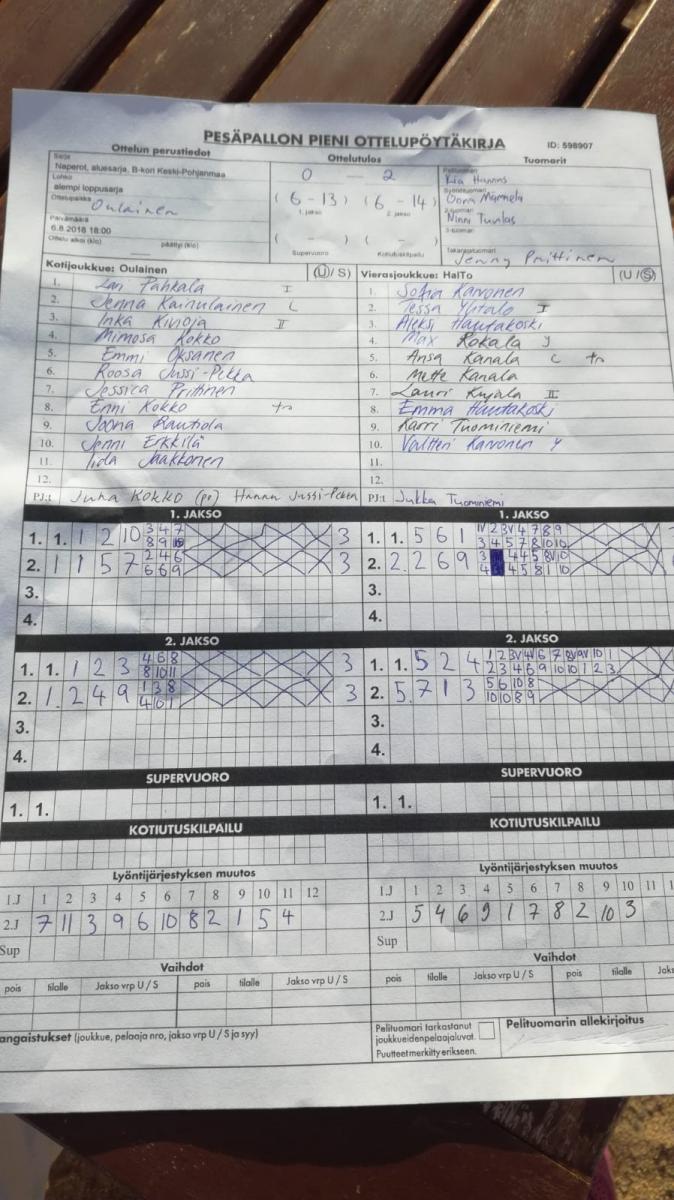 PESÄPALLON PIENI OTTELUPÖYTÄKIRJA ID: 598907
Ottelun perustiedot Ottelutulos Tuomarit
Sarja
Naperot, aluesarja, B-kori Keski-Pohjanmaa
Lohko
alempi loppusarja
Ottelupaikka Oulainen
Päivämäärä
6.8.2018 18:00
Ottelu alkoi (klo) päättyi (klo)
0 — 2
( 6 - 13 ) ( 6 - 14 )
1. jakso 2. jakso
( - ) ( - )
Supervuoro Kotiutuskilpailu
Pelituomari
Syöttötuomari
2-tuomari
3-tuomari
Takarajatuomari
Jenny Prittinen
Kotijoukkue: Oulainen (U/S)
1. Pahkala I
2. Jenna Kainulainen L
3. Inka Kivioja II
4. Mimosa Kokko
5. Emmi Oksanen
6. Roosa Jussi-Pekka
7. Jessica Prittinen
8. Enni Kokko tr
9. Joona Rautiola
10. Jenni Erkkilä
11. Iida Jaakkonen
12.
PJ:t Juha Kokko (pj) Hanna Jussi-Pekka
Vierasjoukkue: HalTo (U/S)
1. Sofia Karvonen
2. Tessa Ylitalo I
3. Aleksi Hautakoski
4. Max Kokala J
5. Ansa Kanala C tr
6. Mette Kanala
7. Lauri Kujala II
8. Emma Hautakoski
9. Karri Tuominiemi
10. Valtteri Karvonen Y
11.
12.
PJ:t Jukka Tuominiemi
1. JAKSO 1. JAKSO
1. 1. 1 2 10 3 4 7 3
8 9 10
2. 1 1 5 7 2 4 6 3
6 6 9
3.
4.
1. 1. 5 6 1 IV 2 3V 4 7 8 9
3 4 5 7 8 10 10
2. 2. 2 6 9 3 4 4 5 8V 10
4 4 5 8 1 10
3.
4.
2. JAKSO 2. JAKSO
1. 1. 1 2 3 4 6 8 3
8 10 11
2. 1. 2 4 9 1 3 8 3
4 10 1
3.
4.
1. 1. 5 2 4 1 2 3V 4V 6 7 8V 9V 10 1
2 3 4 6 9 10 10 1 2 3
2. 5. 7 1 3 5 6 10 8
10 10 8 9
3.
4.
SUPERVUORO SUPERVUORO
1. 1. 1. 1.
KOTIUTUSKILPAILU KOTIUTUSKILPAILU
Lyöntijärjestyksen muutos Lyöntijärjestyksen muutos
1.J 1 2 3 4 5 6 7 8 9 10 11 12
2.J 7 11 3 9 6 10 8 2 1 5 4
Sup
1.J 1 2 3 4 5 6 7 8 9 10 11
2.J 5 4 6 9 1 7 8 2 10 3
Sup
Vaihdot Vaihdot
pois tilalle Jakso vrp U / S pois tilalle Jakso vrp U / S
pois tilalle Jakso vrp U / S pois tilalle
angaistukset (joukkue, pelaaja nro, jakso vrp U / S ja syy)
Pelituomari tarkastanut
joukkueiden pelaajaluvat.
Puutteet merkitty erikseen.
Pelituomarin allekirjoitus